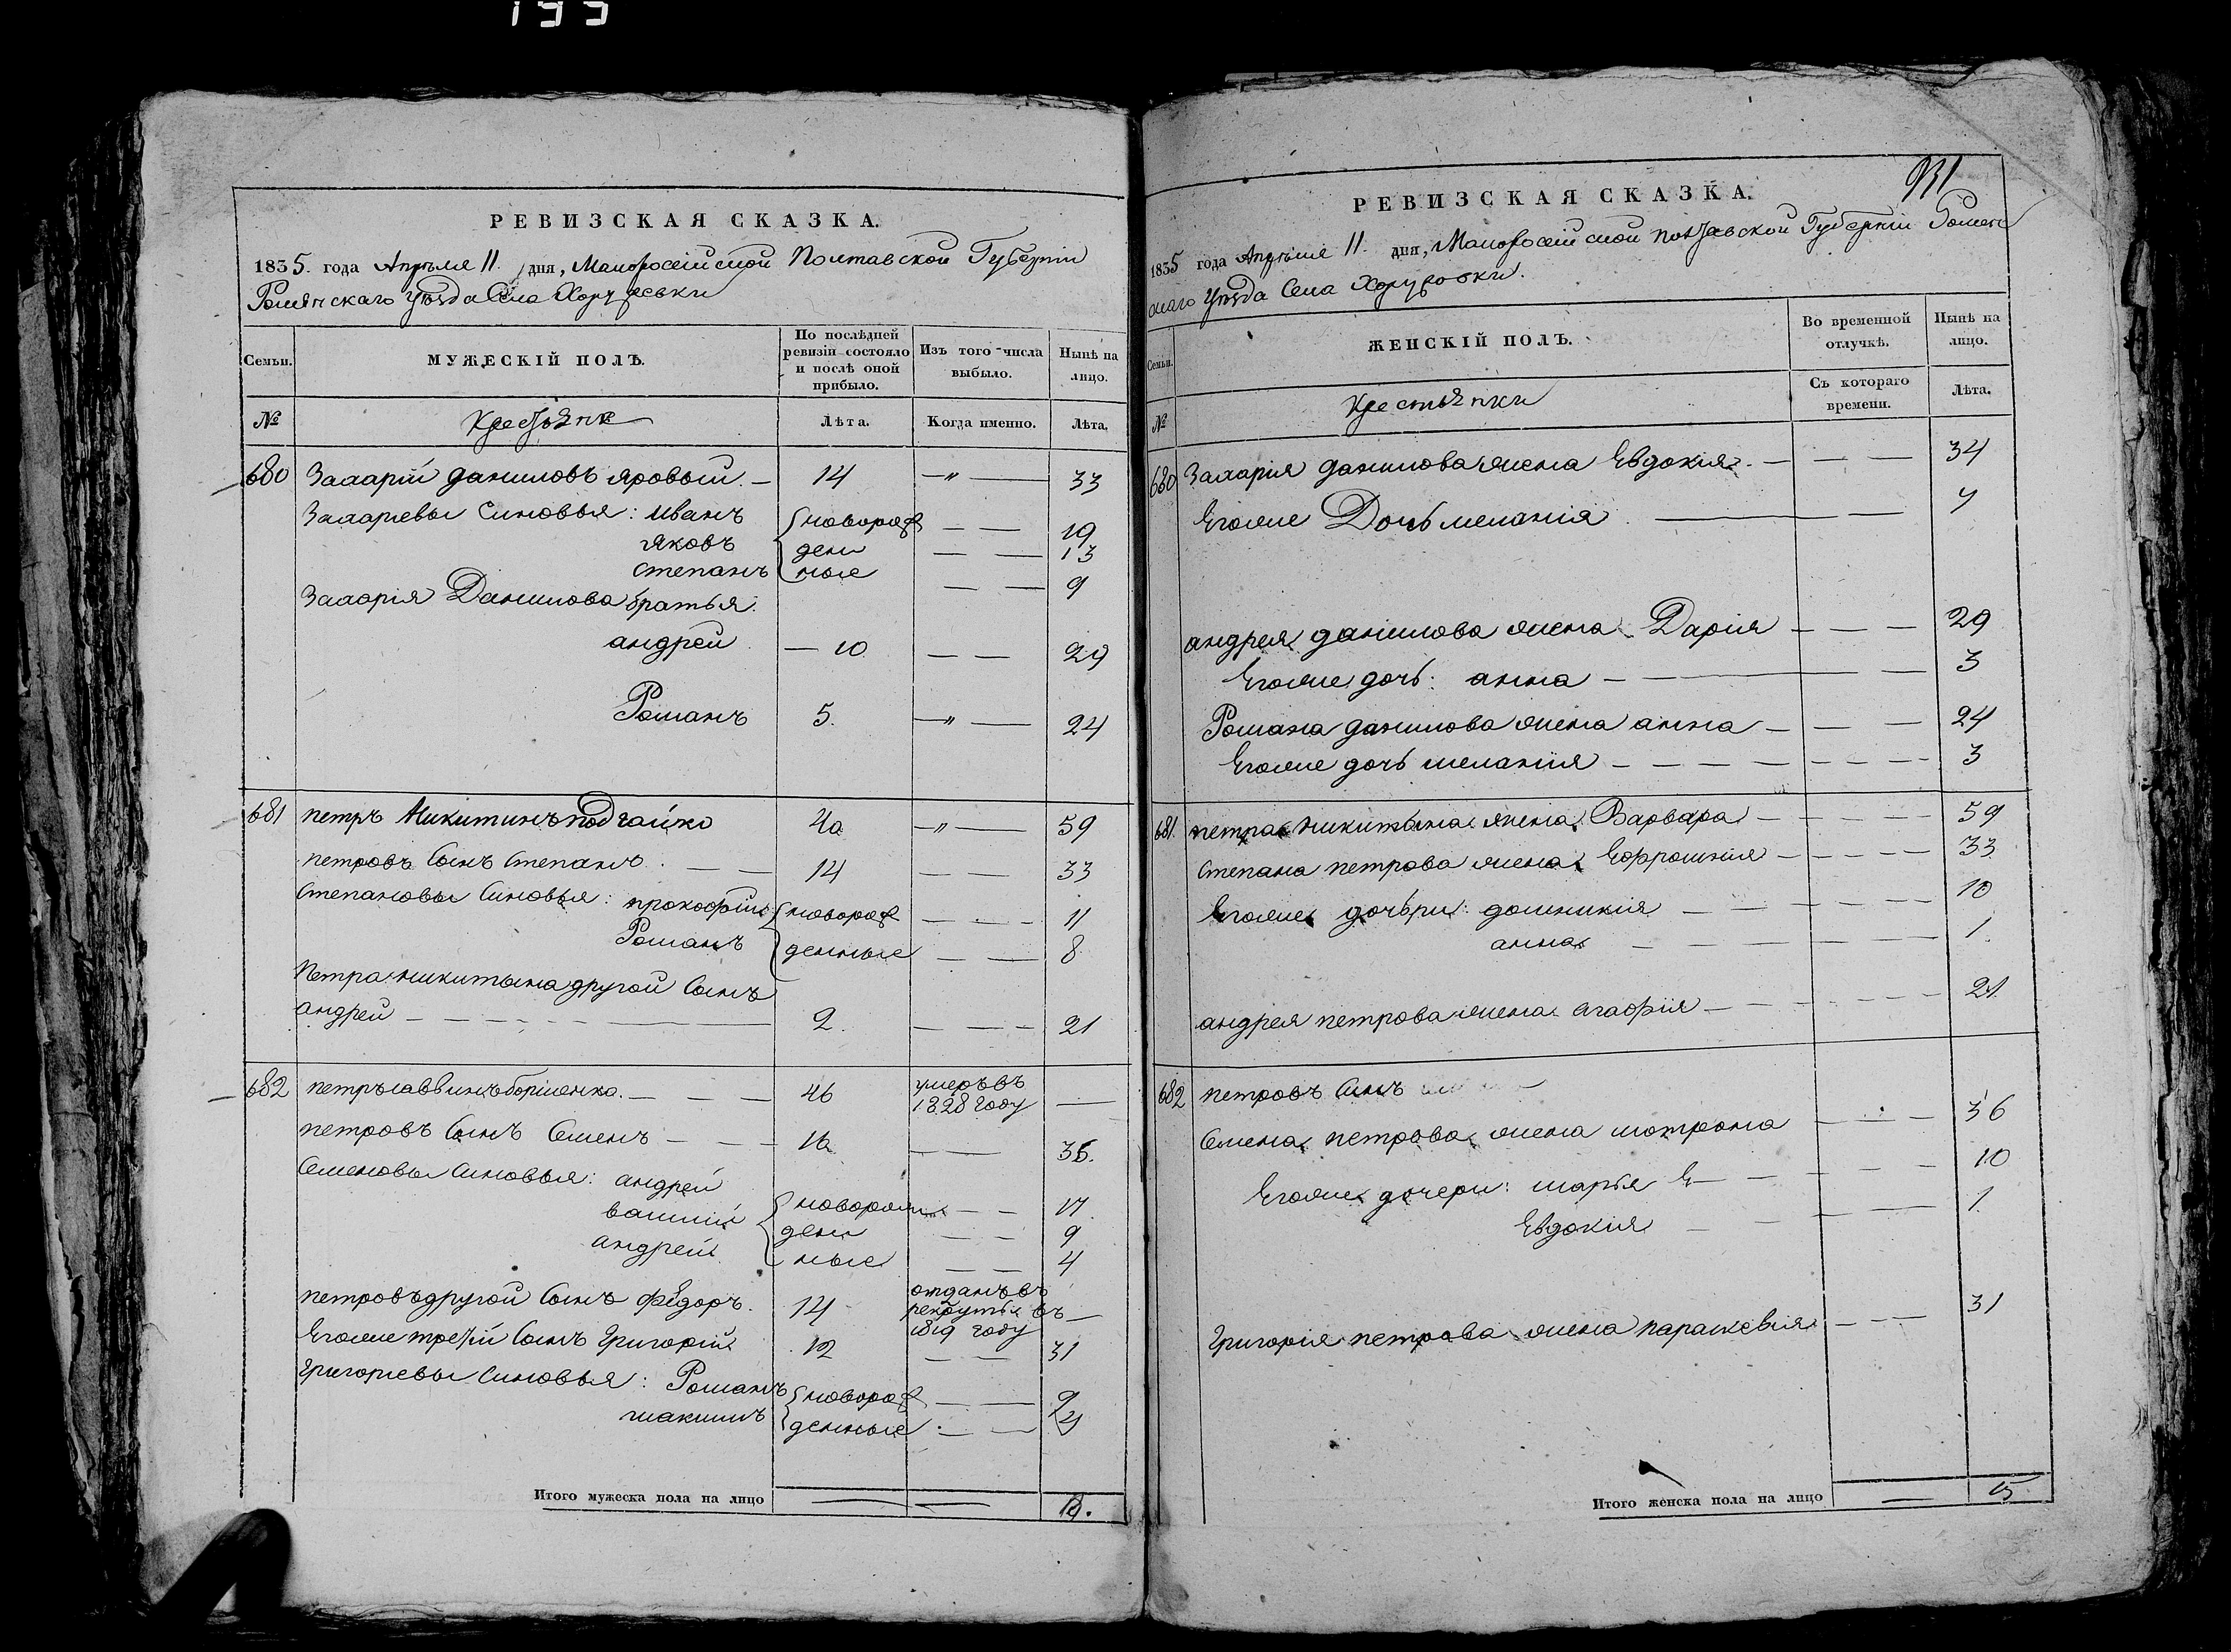 199
РЕВИЗСКАЯ СКАЗКА.
1835. года Апрѣля 11. дня, Малоросейской Полтавской Губерніи
Роменскаго уѣзда Села Хоружевки
Семьи.
МУЖЕСКІЙ ПОЛЪ.
По послѣдней ревизіи состояло и послѣ оной прибыло.
Изъ того числа выбыло.
Нынѣ на лицо.
№
Крестьяне
Лѣта.
Когда именно.
Лѣта.
680 Захарій даниловъ яровый. — 14 —〃— 33
Захарьевы Синовья: иванъ { новорож — — 19
яковъ ден — — 13
степанъ ные — — 9
Захарія Данилова братья:
андрей — 10 — — 29
Романъ 5. —〃— 24
681 петръ Никитинъ подгайко 40 —〃— 59
петровъ Сынъ Степанъ. — — 14 — — 33
Степановы Синовья: прокофій { новорож — — 11
Романъ денные — — 8
Петра никитина другой Сынъ
андрей — — — 2. — — 21
682 петръ саввинъ — — — 46 умеръ въ 1828 году —
петровъ Сынъ Семенъ — — — 16 — — 35.
Семеновы Синовья: андрей
василій { новорож — — 17.
андрей ден — — 9
ные — — 4
петровъ другой Сынъ Федоръ. 14 отданъ въ рекруты въ 1819 году —
Его же третій Сынъ Григорій 12 — — 31
Григорьевы Синовья: Романъ { новорож — — 9
максимъ денные — — 4
Итого мужеска пола на лицо
931
РЕВИЗСКАЯ СКАЗКА.
1835 года Апрѣля 11. дня, Малоросейской Полтавской Губерніи Ромен
скаго уѣзда Села Хоружовки.
Семьи.
ЖЕНСКІЙ ПОЛЪ.
Во временной отлучкѣ.
Нынѣ на лицо.
№
Крестьянки
Съ котораго времени.
Лѣта.
680 Захарія данилова жена Евдокія. — — — 34
Его же Дочь меланія — — —
андрея данилова жена Дарія — — — 29
Его же дочь: анна — — — 3
Романа данилова жена анна — — — 24
Его же дочь меланія — — — 3
681. петра никитина жена Варвара — — — 59
Степана петрова жена Ефросинія — — — 33
Его же дочьри: домникія — — — 10
анна — — — 1.
андрея петрова жена агафія — — — 21
682 петровъ Синъ
Семена петрова жена мотрона — — — 36
Его же дочери: марья Е — — — 10
Евдокія — — — 1.
Григорія петрова жена параскевія — — — 31
Итого женска пола на лицо — 15